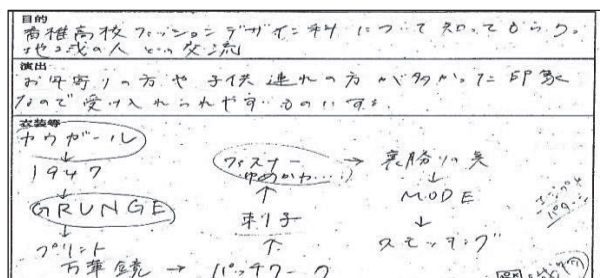 目的
香椎高校ファッションデザイン科について知ってもらう。
地域の人との交流
演出
お年寄りの方や子供連れの方が多かった印象
なので受け入れられやすいものにする。
衣装等
カウガール
↓
1947
↓
GRUNGE
↓
プリント
万華鏡 → パッチワーク
↑
刺子
↑
ファスナー
ゆめかわ…
→ 裏勝りの美
↓
MODE
↓
スモッキング